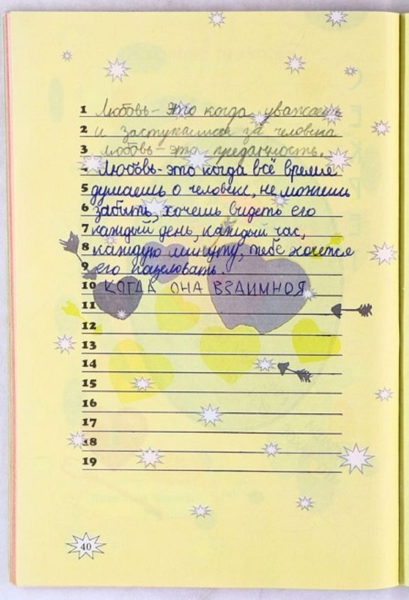 1 Любовь - это когда уважаешь
2 и заступаешся за человека
3 любовь - это преданность.
4 Любовь - это когда всё время
5 думаешь о человеке, не можешь
6 забыть, хочешь видеть его
7 каждый день, каждый час,
8 каждую минуту, тебе хочется
9 его поцеловать.
10 КОГДА ОНА ВЗАИМНОЯ
11
12
13
14
15
16
17
18
19
40